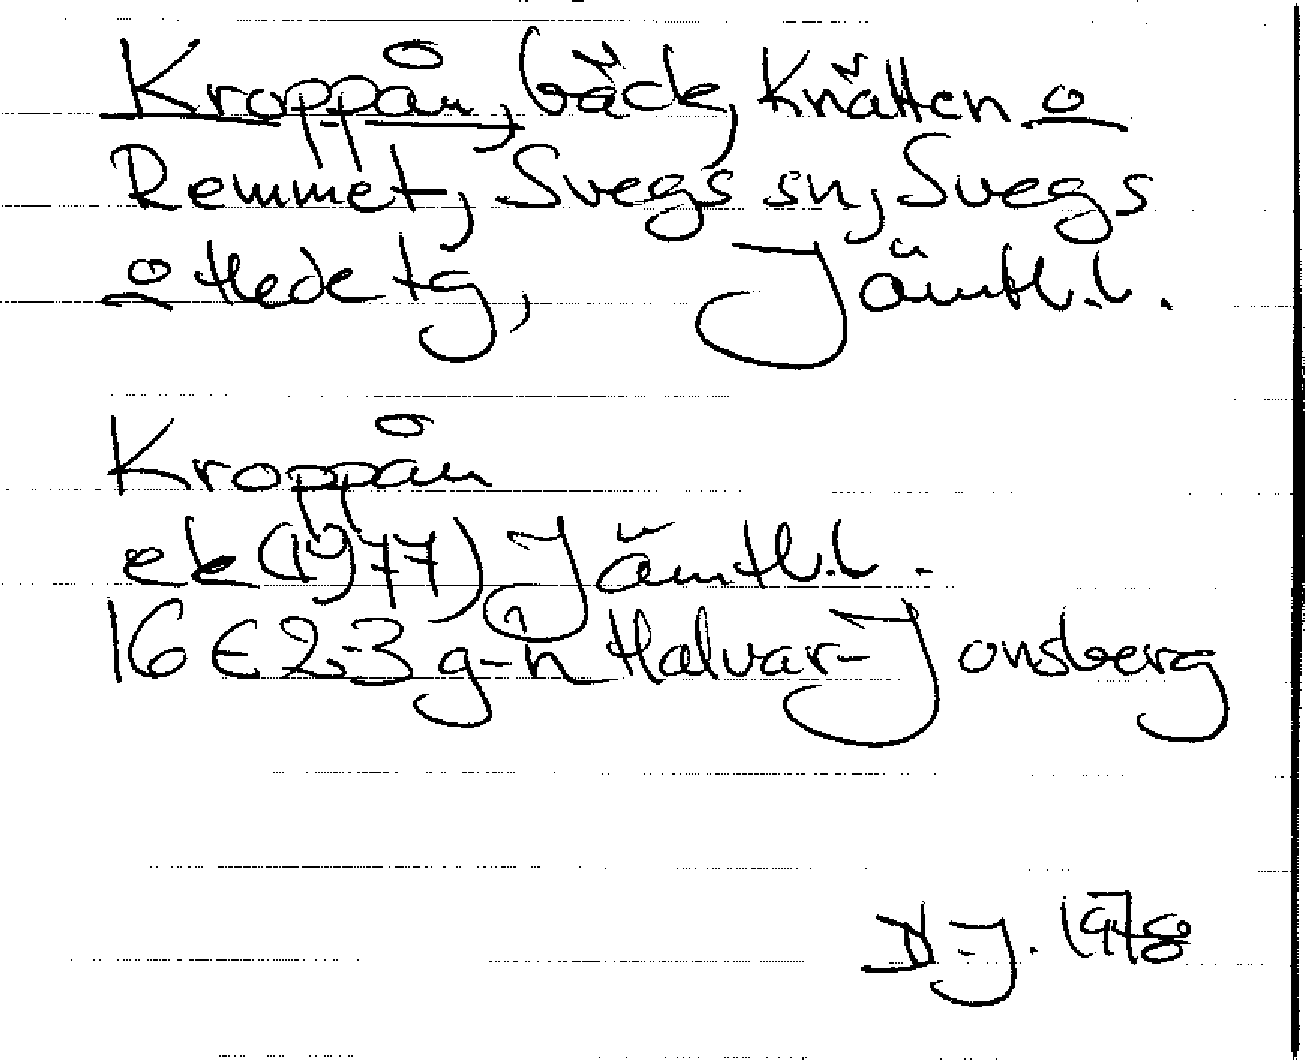 Kroppån, bäck, Knätten o
Remmet, Svegs sn, Svegs
o Hede tg, Jämtl.l.
Kroppån
ek (1977) Jämtl.l.
16 E 2-3 g-h Halvar-Jonsberg
1978